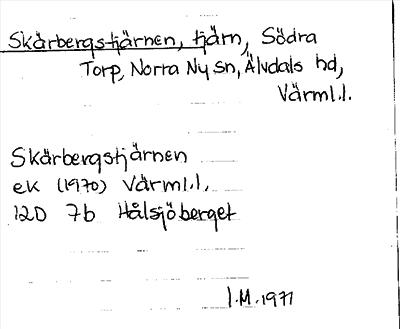 Skärbergstjärnen, tjärn, Södra
Torp, Norra Ny sn, Älvdals hd,
Värml.l.
Skärbergstjärnen
ek (1970) Värml.l.
12D 7b Hålsjöberget
I.M. 1971